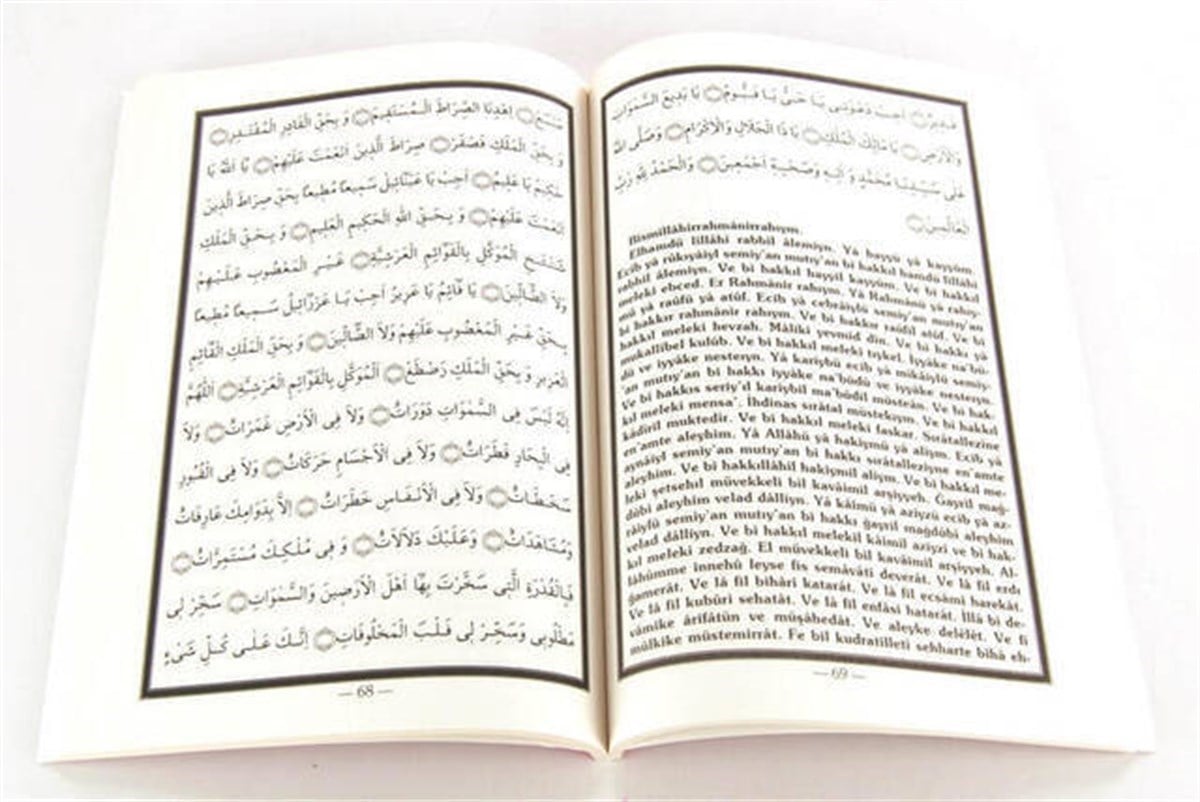 مَنْسَعْ اِهْدِنَا الصِّرَاطَ الْمُسْتَقِيمَ وَ بِحَقِّ الْقَادِرِ الْمُقْتَدِرِ
وَ بِحَقِّ الْمَلَكِ فَصْقَرْ صِرَاطَ الَّذِينَ اَنْعَمْتَ عَلَيْهِمْ يَا اَللّٰهُ يَا
حَكِيمُ يَا عَلِيمُ اَجِبْ يَا عَيْنَائِيلُ سَمِيعًا مُطِيعًا بِحَقِّ صِرَاطَ الَّذِينَ
اَنْعَمْتَ عَلَيْهِمْ وَ بِحَقِّ اللّٰهِ الْحَكِيمِ الْعَلِيمِ وَ بِحَقِّ الْمَلَكِ
الْمُوَكَّلِ بِالْقَوَائِمِ الْعَرْشِيَّةِ غَيْرِ الْمَغْضُوبِ عَلَيْهِمْ
وَلَا الضَّالِّينَ يَا قَائِمُ يَا عَزِيزُ اَجِبْ يَا عَزْرَائِيلُ سَمِيعًا مُطِيعًا
بِحَقِّ غَيْرِ الْمَغْضُوبِ عَلَيْهِمْ وَلَا الضَّالِّينَ وَ بِحَقِّ الْمَلِكِ الْقَائِمِ
الْعَزِيزِ وَ بِحَقِّ الْمَلَكِ اَلْمُوَكَّلِ بِالْقَوَائِمِ الْعَرْشِيَّةِ اَللّٰهُمَّ
اِنَّهُ لَيْسَ فِى السَّمٰوَاتِ دَوَرَاتٌ وَلَا فِى الْاَرْضِ غَمَرَاتٌ وَلَا
فِى الْبِحَارِ قَطَرَاتٌ وَلَا فِى الْاَجْسَامِ حَرَكَاتٌ وَلَا فِى الْقُبُورِ
وَلَا فِى الْاَنْفَاسِ خَطَرَاتٌ اِلَّا بِدَوَامِكَ عَارِفَاتٌ
وَمُشَاهَدَاتٌ وَعَلَيْكَ دَلَالَاتٌ وَ فِى مُلْكِكَ مُسْتَمِرَّاتٌ
فَبِالْقُدْرَةِ الَّتِى سَخَّرْتَ بِهَا اَهْلَ الْاَرَضِينَ وَالسَّمٰوَاتِ سَخِّرْ لِى
مَطْلُوبِى وَسَخِّرْ لِى قَلْبَ الْمَخْلُوقَاتِ اِنَّكَ عَلٰى كُلِّ شَىْءٍ
— 68 —
قَدِيرٌ اَجِبْ دَعْوَتِى يَا حَىُّ يَا قَيُّومُ يَا بَدِيعَ السَّمٰوَاتِ
وَالْاَرْضِ يَا مَالِكَ الْمُلْكِ يَا ذَا الْجَلَالِ وَالْاِكْرَامِ وَصَلَّى اللّٰهُ
عَلٰى سَيِّدِنَا مُحَمَّدٍ وَ اٰلِهِ وَصَحْبِهِ اَجْمَعِينَ وَالْحَمْدُ لِلّٰهِ رَبِّ
الْعَالَمِينَ
Bismillâhirrahmânirrahıym.
Elhamdü lillâhi rabbil âlemiyn. Yâ hayyü yâ kayyüm.
Ecib yâ rûkıyâiyl semiy'an mutıy'an bi hakkıl hamdü lillâhi
rabbil âlemiyn. Ve bi hakkıl hayyil kayyûm. Ve bi hakkıl
meleki ebced. Er Rahmânir rahıym. Yâ Rahmânü yâ rahıy-
mü yâ raûfü yâ atûf. Ecib yâ cebraiylü semiy'an mutıy'an
bi hakkır rahmânir rahıym. Ve bi hakkır raûfil atûf. Ve bi
hakkıl meleki hevzah. Mâliki yevmid din. Ve bi hakkı yâ
mukallibel kulûb. Ve bi hakkıl meleki tıykel. İyyâke na'bü-
dü ve iyyâke nesteıyn. Yâ kariybü ecib yâ mikâiylü semiy-
'an mutıy'an bi hakkı iyyâke na'büdü ve iyyâke nesteıyn.
Ve bi hakkıs seriy'ıl kariybil ma'büdil müsteân. Ve bi hak-
kıl meleki mensa'. İhdinas sırâtal müstekıym. Ve bi hakkıl
kâdiril muktedir. Ve bi hakkıl meleki faskar. Sırâtallezine
en'amte aleyhim. Yâ Allâhü yâ hakiymü yâ aliym. Ecib yâ
aynâiyl semiy'an mutıy'an bi hakkı sırâtalleziyne en'amte
aleyhim. Ve bi hakkıllâhil hakiymil aliym. Ve bi hakkıl me-
leki şetsehıl müvekkeli bil kavâimil arşiyyeh. Ğayril mağ-
dûbi aleyhim velad dâlliyn. Yâ kâimü yâ aziyzü ecib yâ az-
râiylü semiy'an mutıy'an bi hakkı ğayril mağdûbi aleyhim
velad dâlliyn. Ve bi hakkıl melekil kâimil aziyzi ve bi hak-
kıl meleki zedzağ. El müvekkeli bil kavâimil arşiyyeh. Al-
lâhümme innehû leyse fis semâvâti deverât. Ve lâ fil erdı
ğamerât. Ve lâ fil bihâri katarât. Ve lâ fil ecsâmi harekât.
Ve lâ fil kubûri sehatât. Ve lâ fil enfâsi hatarât. İllâ bi de-
vâmike ârifâtün ve müşâhedât. Ve aleyke delêlêt. Ve fi
mülkike müstemirrât. Fe bil kudratilleti sehharte bihâ eh-
— 69 —